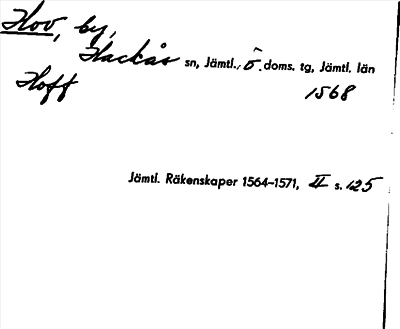 Hov, by,
Hackås sn, Jämtl., ö. doms. tg, Jämtl. län
Hoff 1568
Jämtl. Räkenskaper 1564-1571, II s. 125